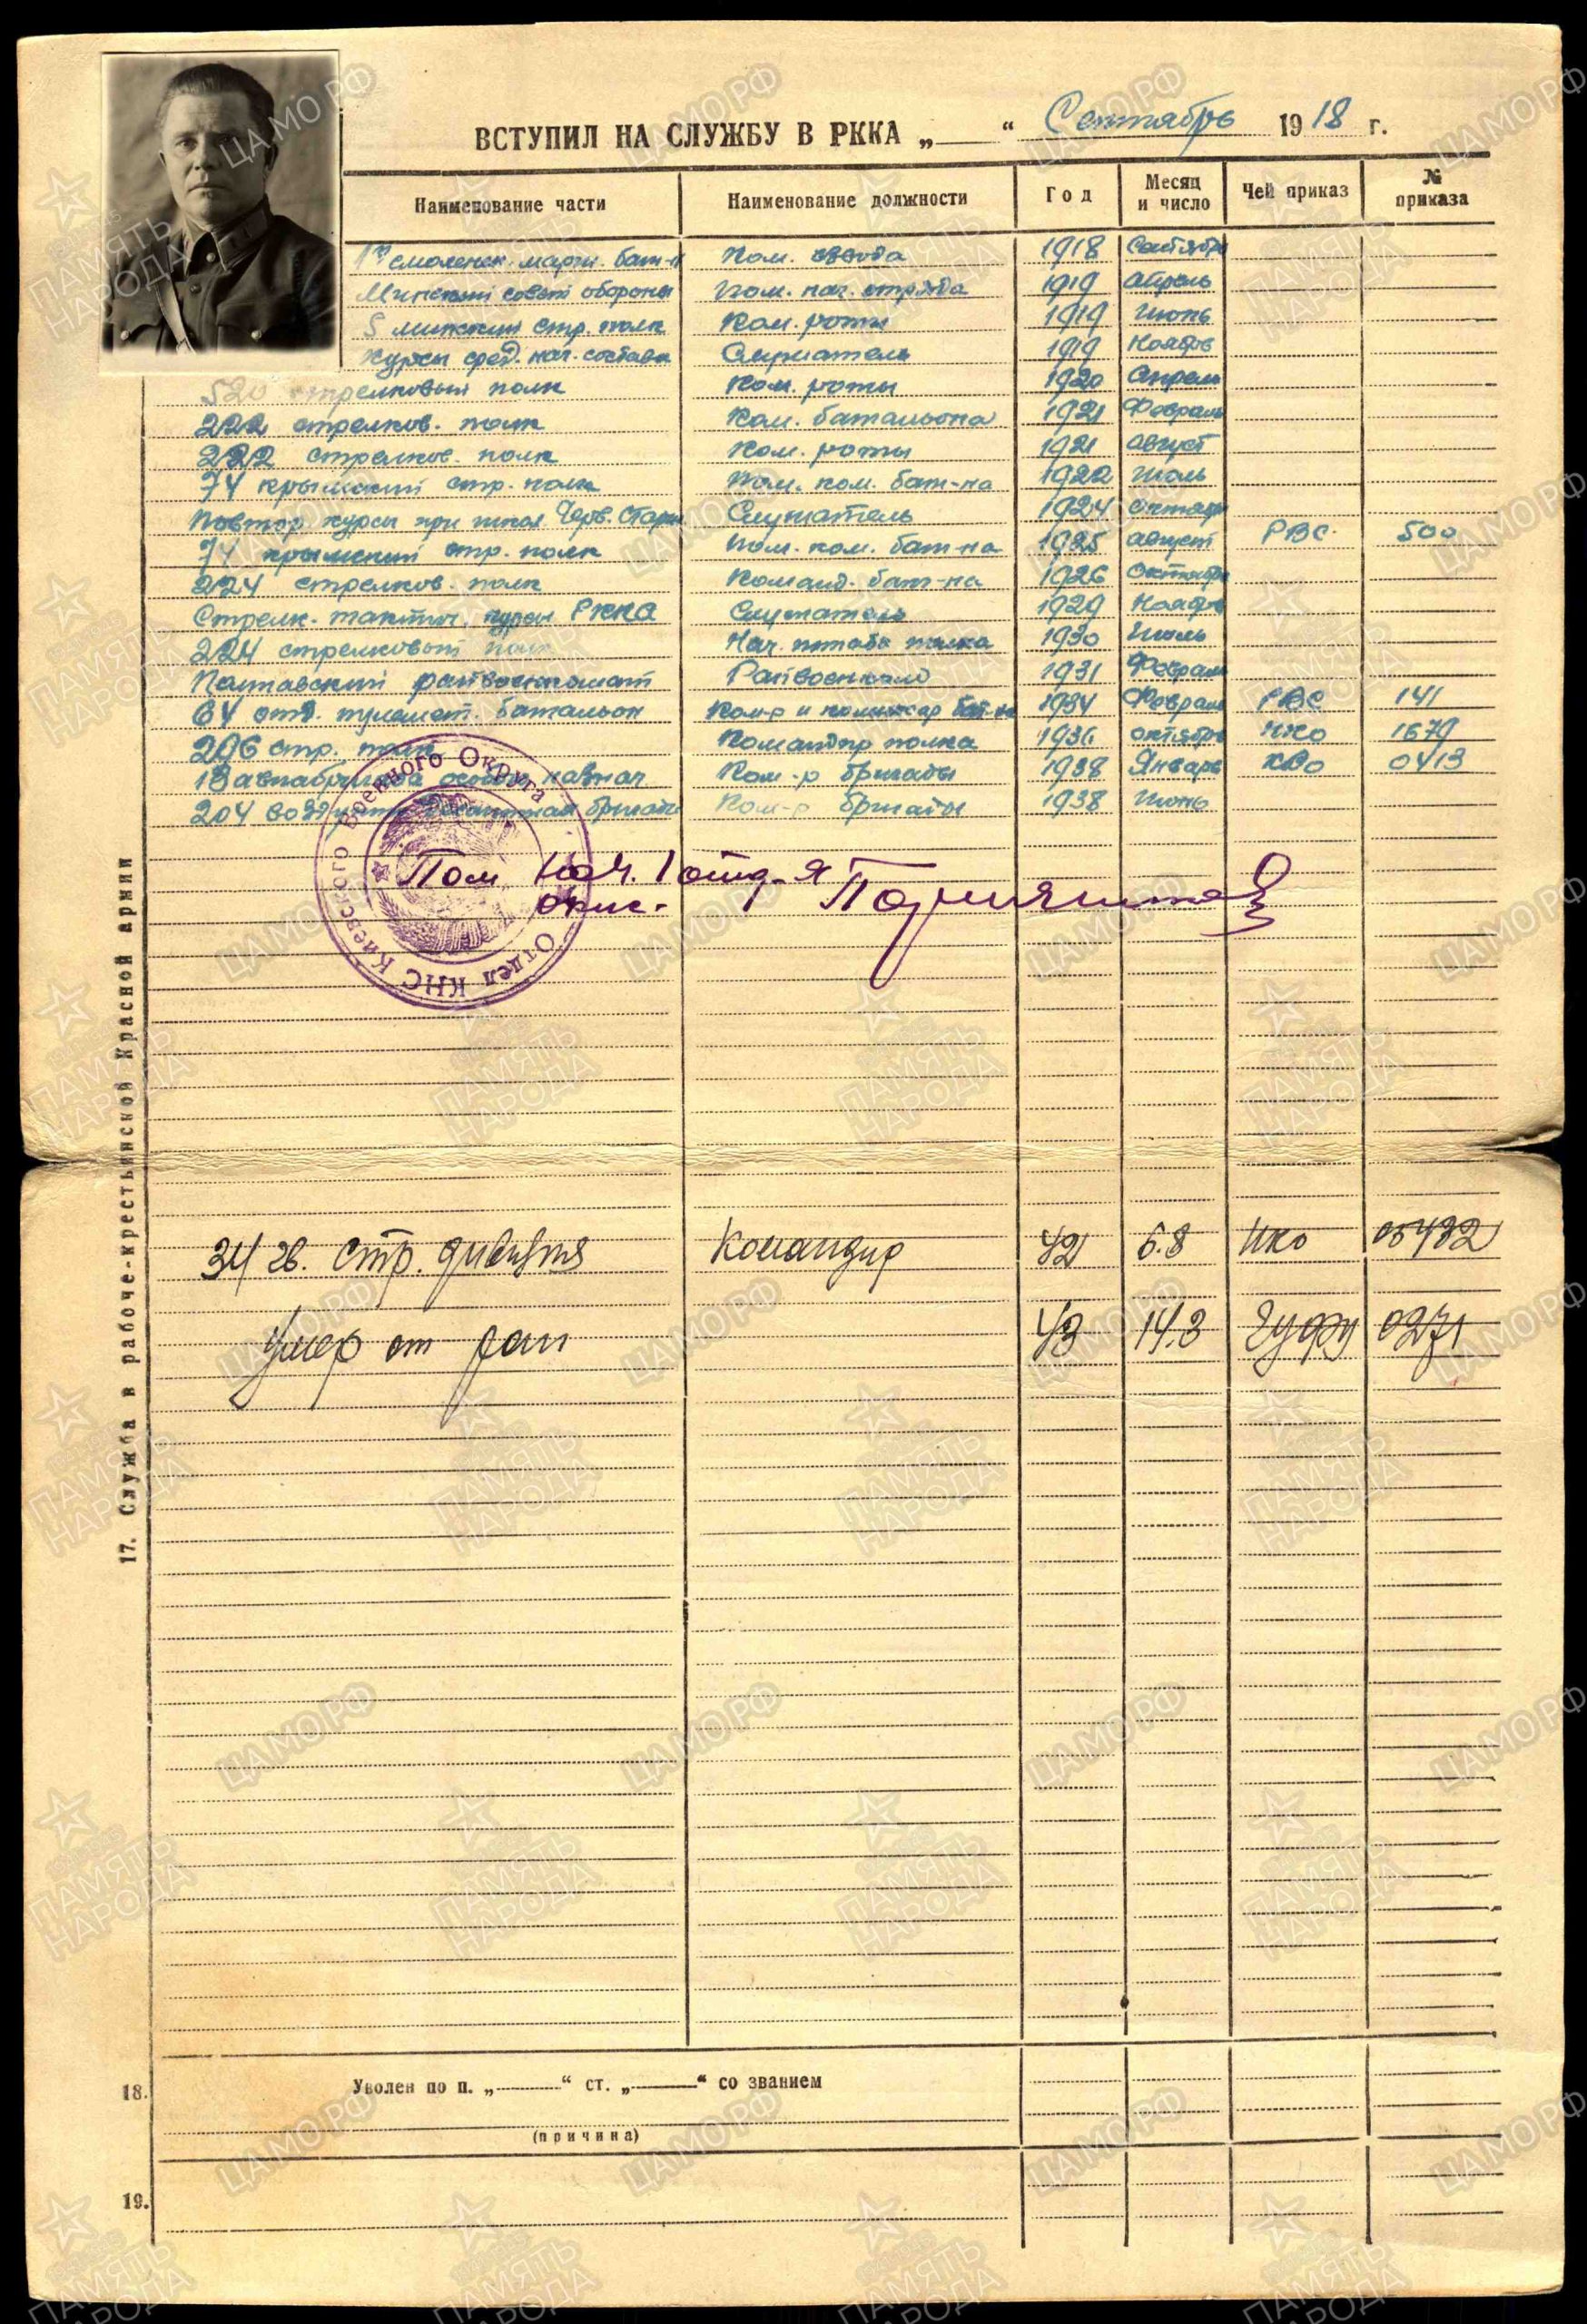 ВСТУПИЛ НА СЛУЖБУ В РККА „ “ Сентябрь 1918 г.
Наименование части Наименование должности Год Месяц и число Чей приказ № приказа
1й смоленск. марш. бат-н Ком. взвода 1918 Сентябрь
Минский совет обороны Пом. нач. отряда 1919 Апрель
5 минский стр. полк Ком. роты 1919 Июнь
Курсы сред. нач. состава Слушатель 1919 Ноябрь
520 стрелковый полк Ком. роты 1920 Апрель
222 стрелков. полк Ком. батальона 1921 Февраль
222 стрелков. полк Ком. роты 1921 Август
74 крымский стр. полк Пом. ком. бат-на 1922 Июль
Повтор. курсы при школ. Черв. Старш Слушатель 1924 Октябрь
74 крымский стр. полк Пом. ком. бат-на 1925 Август РВС 500
224 стрелков. полк Команд. бат-на 1926 Октябрь
Стрелк. тактич. курсы РККА Слушатель 1929 Ноябрь
224 стрелковый полк Нач. штаба полка 1930 Июль
Полтавский райвоенкомат Райвоенком 1931 Февраль
64 отд. пулемет. батальон Ком-р и комиссар бат-на 1934 Февраль РВС 141
296 стр. полк Командир полка 1936 Октябрь НКО 1679
13 авиабригада особого назнач Ком-р бригады 1938 Январь КВО 0413
204 воздушно десантная бригада Ком-р бригады 1938 Июнь
Киевского Военного Округа
Отдел КНС
Пом Нач. 1 отд-я
17. Служба в рабоче-крестьянской Красной армии
34 гв. стр. дивизия Командир 42 6.8 НКО 05482
Умер от ран 43 14.3 ГУФУ 0271
18. Уволен по п. „ “ ст. „ “ со званием
(причина)
19.
ЦАМО.РФ
ПАМЯТЬ НАРОДА